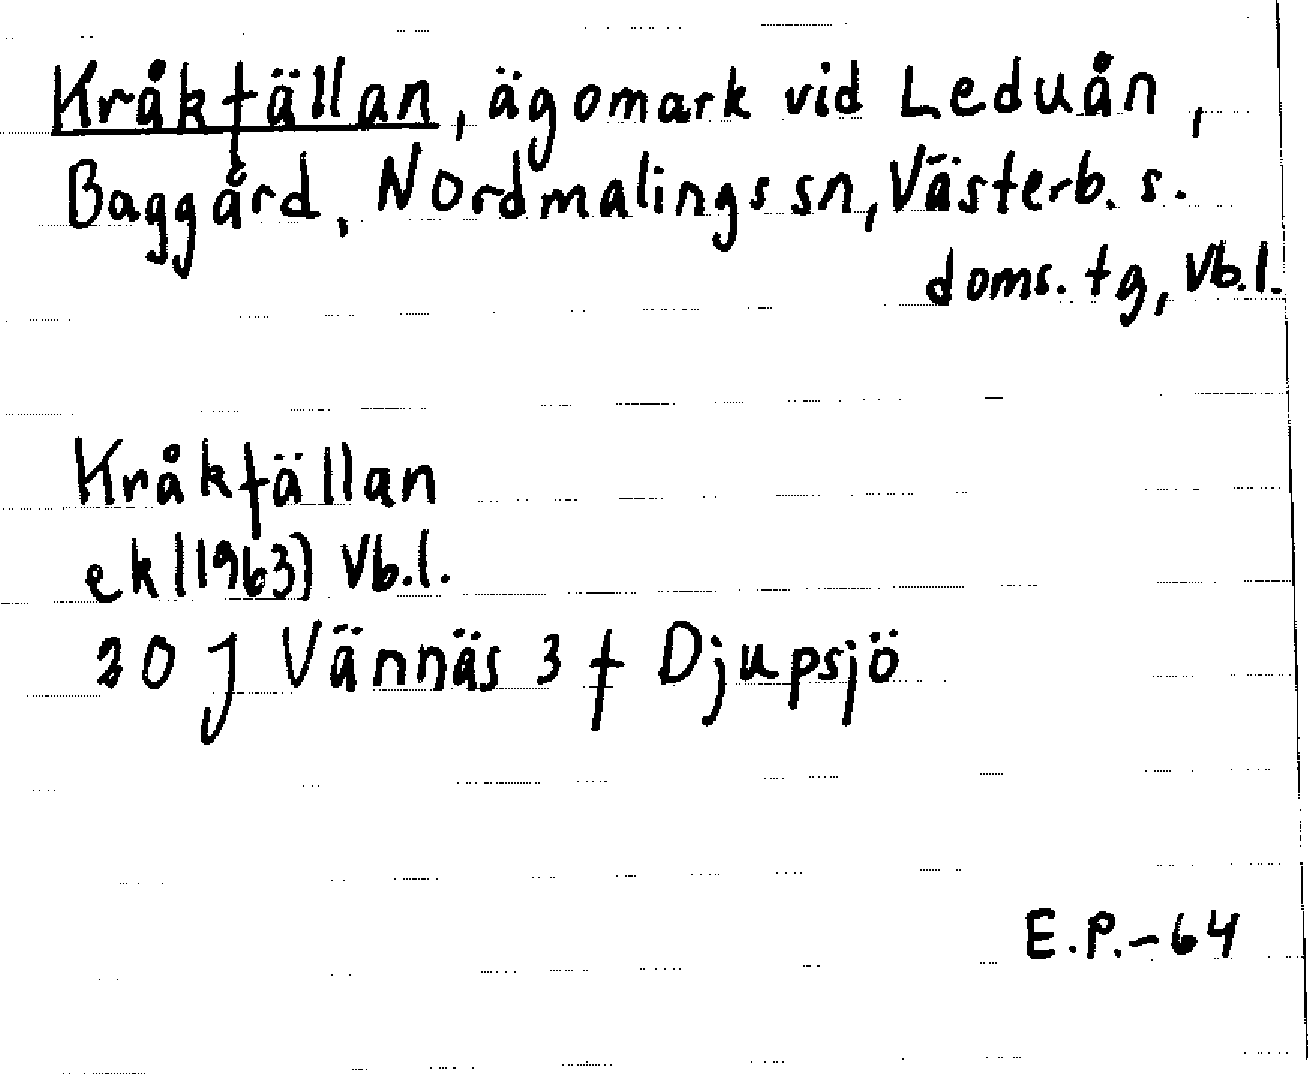 Kråkfällan, ägomark vid Leduån,
Baggård, Nordmalings sn, Västerb. s.
doms. tg, Vb.l.
Kråkfällan
ek (1963) Vb.l.
20 J Vännäs 3 f Djupsjö
E.P.-64